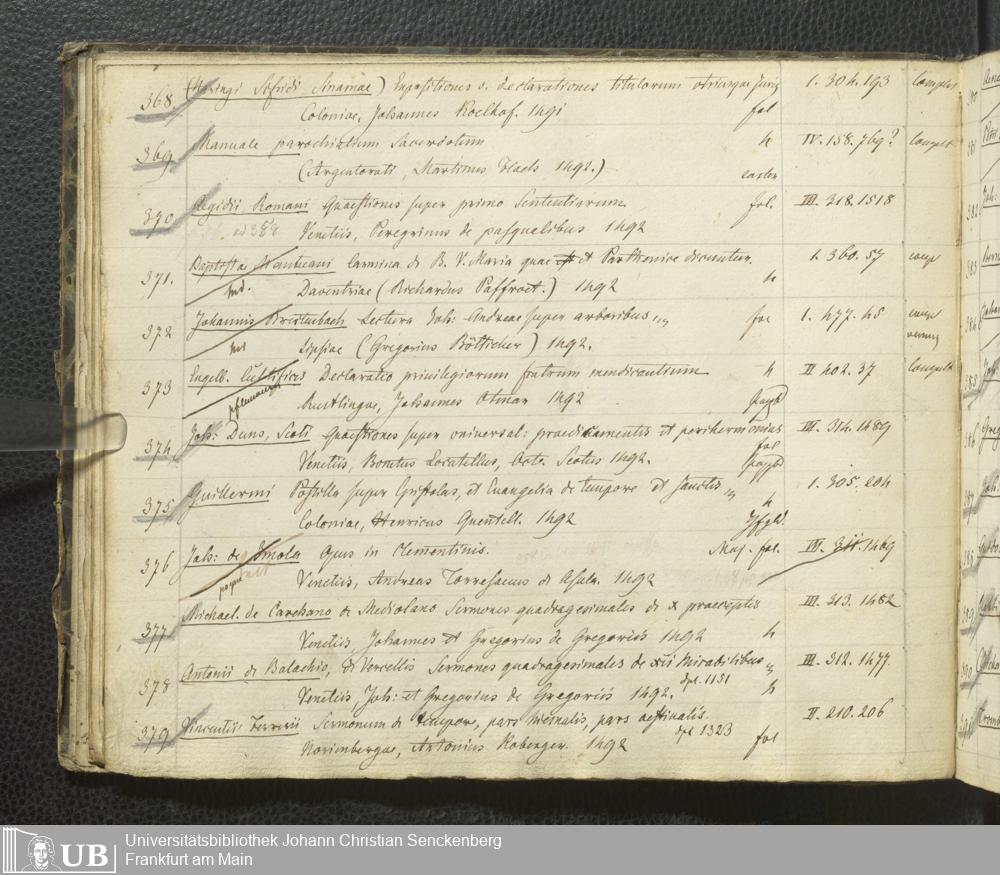 368. (Haringi Sifridi Sinamae) Expositiones s. declarationes titulorum utriusque Juris I. 304. 193 complet
Coloniae, Johannes Koelhof. 1491 fol
369 Manuale parochialium Sacerdotum 4 IV. 158. 769? complt
(Argentorati, Martinus Flach 1492.)
370 Aegidii Romani Quaestiones super primo Sententiarum fol. III. 318. 1518
Venetiis, Peregrinus de pasqualibus 1492
371. Baptistae Mantuani Carmina de B. V. Maria quae et Parthenice dicuntur. I. 360. 57
Daventriae (Richardus Paffroet.) 1492 4
372 Johannis Breitenbach Lectura Joh: Andreae super arboribus fol I. 477. 45
Lipsiae (Gregorius Bötticher) 1492.
373 Engelb. Cultificis Declaratio privilegiorum fratrum mendicantium 4 II 402. 37 complt
Reutlingae, Johannes Otmar 1492
374 Joh: Duns, Scoti Quaestiones super universal: praedicamentis et perihermonias III. 314. 1489
fol
Venetiis, Bonetus Locatellus, Octo. Scotus 1492.
375 Guillermi Postilla super Epistolas, et Evangelia de tempore et Sanctis I. 305. 204
4
Coloniae, Henricus Quentell. 1492
376 Joh: de Imola Opus in Clementinis. Maj. fol. 1469
Venetiis, Andreas Torresanus de Asula. 1492
377 Michael. de Carchano de Mediolano Sermones quadragesimales de x praeceptis III. 313. 1482
Venetiis Johannes et Gregorius de Gregoriis 1492 4
378 Antonii de Balochio, de Vercellis Sermones quadragesimales de xii Mirabilibus III. 312. 1477.
dpl. 1151
Venetiis Joh: et Gregorius de Gregoriis 1492. 4
379 Vincentii Ferrerii Sermonum de tempore, pars hiemalis, pars aestivalis. II. 210. 206
dpl 1323
Norimbergae, Antonius Koberger. 1492 fol
UB Universitätsbibliothek Johann Christian Senckenberg
Frankfurt am Main